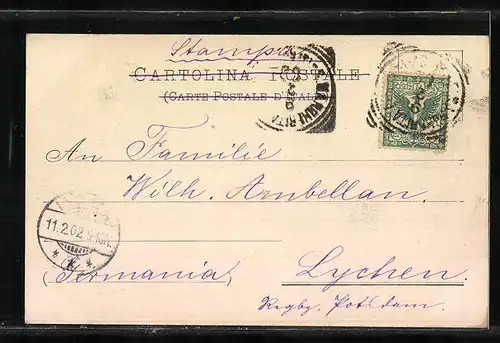 Stampe
CARTOLINA POSTALE
(CARTE POSTALE D'ITALIE)
An Familie
Wilh. Arnbellan.
11.2.02.
(Germania)
Lychen.
Regbz. Potsdam.